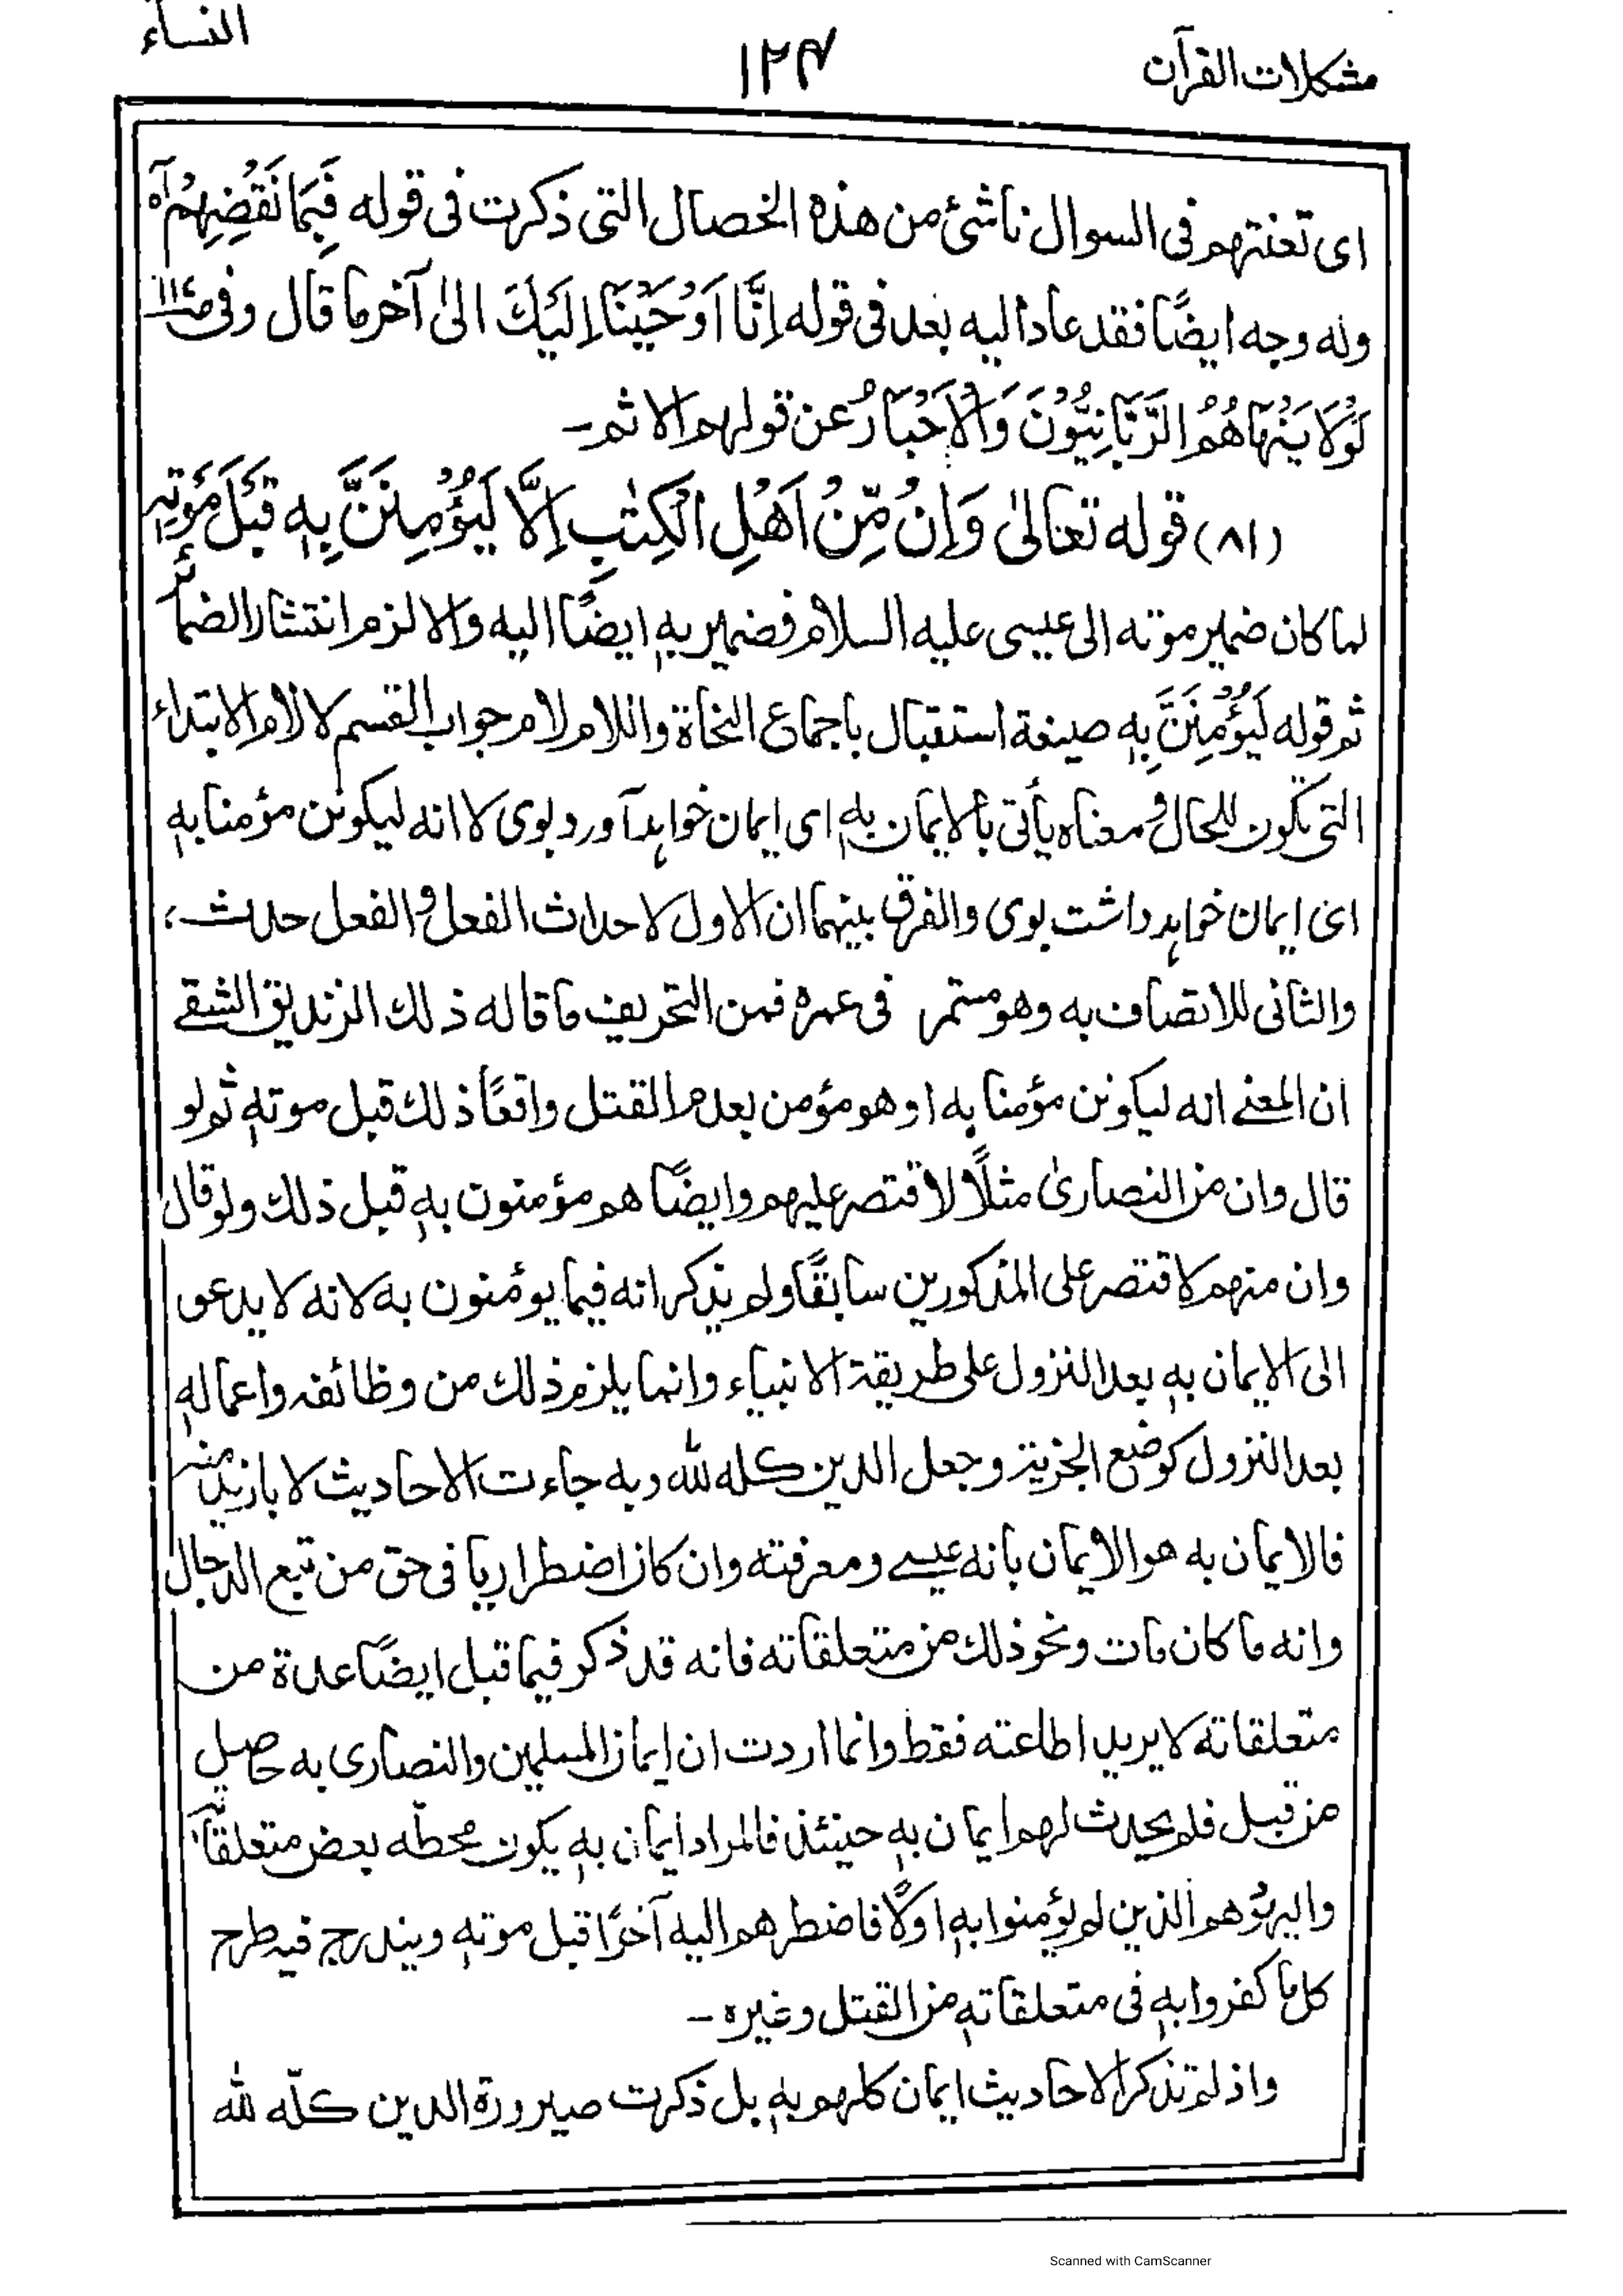 النساء
۱۲۴
مشكلات القرآن
اى تعنتهم فى السوال ناشئ من هذه الخصال التى ذكرت فى قوله فَبِمَا نَقْضِهِمْ آه
وله وجه ايضًا فقد عاد اليه بعد فى قوله اِنَّا اَوْحَيْنَا اِلَيْكَ الىٰ آخر ما قال وفى
لَوْلَا يَنْهَاهُمُ الرَّبَّانِيُّوْنَ وَالْاَحْبَارُ عن قولهم الاثم ـ
(۸۱) قوله تعالىٰ وَاِنْ مِّنْ اَهْلِ الْكِتٰبِ اِلَّا لَيُؤْمِنَنَّ بِهٖ قَبْلَ مَوْتِهٖ
لما كان ضمير موته الى عيسى عليه السلام فضمير بهٖ ايضًا اليه والا لزم انتشار الضمائر
ثم قوله لَيُؤْمِنَنَّ بِهٖ صيغة استقبال باجماع النحاة واللام لام جواب القسم لا لام الابتداء
التى تكون للحال و معناه يأتى بالايمان بهٖ اى ايمان خواہد آورد بوى لا انه ليكونن مؤمنا بهٖ
اى ايمان خواہد داشت بوى والفرق بينهما ان الاول لاحداث الفعل و الفعل حدث،
والثانى للاتصاف به وهو مستمر فى عمره فمن التحريف ما قاله ذلك الزنديق الشقے
ان المعنے انه ليكونن مؤمنا به او هو مؤمن بعدم القتل واقعًا ذلك قبل موتهٖ ثم لو
قال وان من النصارىٰ مثلًا لاقتصر عليهم وايضًا هم مؤمنون بهٖ قبل ذلك ولو قال
وان منهم لاقتصر على المذكورين سابقًا ولم يذكر انه فيما يؤمنون به لانه لا يدعو
الى الايمان بهٖ بعد النزول على طريقة الانبياء وانما يلزم ذلك من وظائفه واعمالهٖ
بعد النزول كوضع الجزية وجعل الدين كله لله وبه جاءت الاحاديث لا بازيد منه
فالايمان به هو الايمان بانه عيسے ومعرفته وان كان اضطراريا فى حق من تبع الدجال
وانه ما كان مات ونحو ذلك من متعلقاته فانه قد ذكر فيما قبل ايضًا عدة من
متعلقاته لا يريد اطاعته فقط وانما اردت ان ايمان المسلمين والنصارى به حاصل
من قبل فلم يحدث لهم ايمان بهٖ حينئذ فالمراد ايمان بهٖ يكون محطّه بعض متعلقاته
واليهود هم الذين لم يؤمنوا بهٖ اوّلًا فاضطرهم اليه آخرًا قبل موتهٖ ويندرج فيه طرح
كل ما كفروا بهٖ فى متعلقاتهٖ من القتل وغيره ـ
واذ لم تذكر الاحاديث ايمان كلهم بهٖ بل ذكرت صيرورة الدين كلّه لله
Scanned with CamScanner